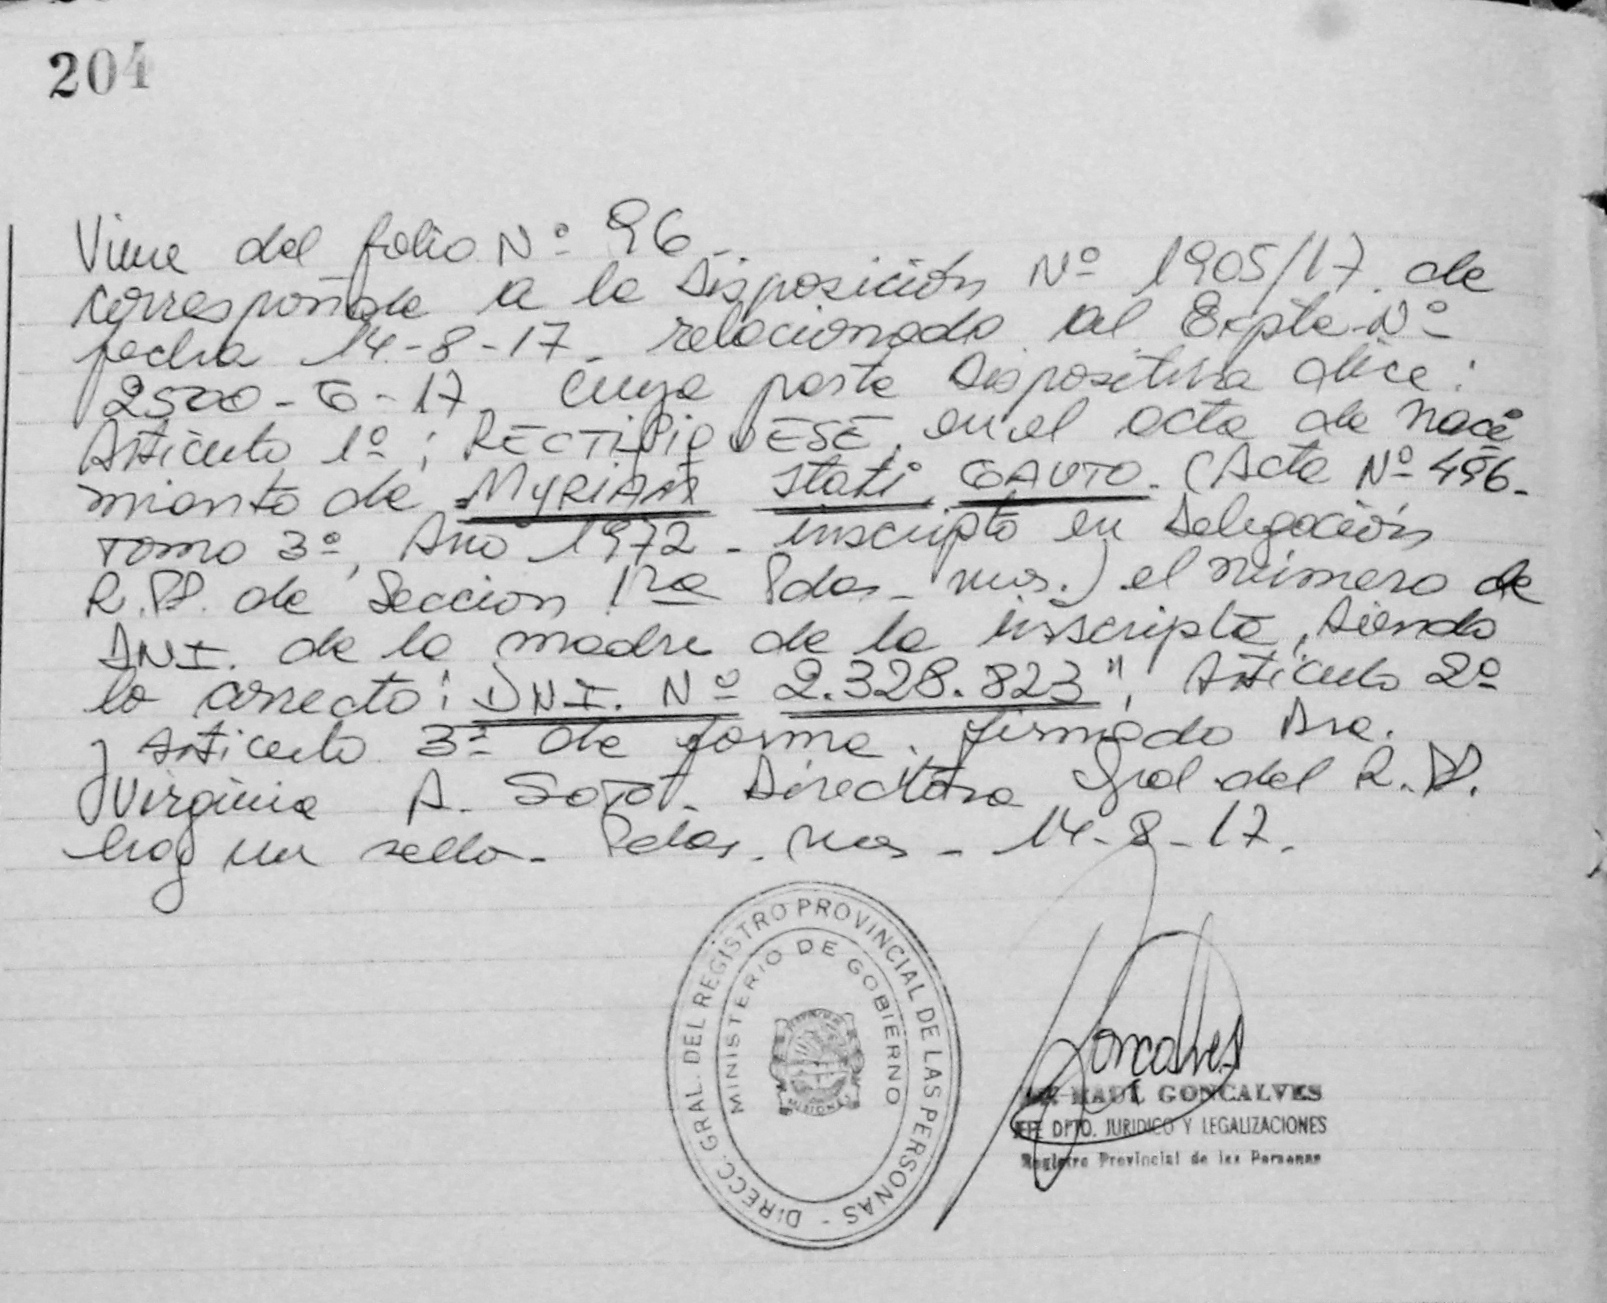 204
Viene del folio Nº 96.
corresponde a la Disposición Nº 1905/17. de
fecha 14-8-17- relacionado al Expte-Nº
2500-G-17. cuya parte Dispositiva dice:
Artículo 1º: RECTIFIQUESE, en el acta de naci
miento de MYRIAM Itatí, GAUTO. (Acta Nº 496-
Tomo 3º, Año 1972- inscripto en Delegación
R.PP. de Sección 1ra Pdas- Mis.) el número de
DNI. de la madre de la inscripta, siendo
lo correcto: DNI. Nº 2.328.823", Artículo 2º
y Artículo 3º de forma. firmado Dra.
Virginia A. Soto. Directora Gral del R.PP.
hay un sello- Pdas. Mis- 14-8-17.
DIRECC. GRAL. DEL REGISTRO PROVINCIAL DE LAS PERSONAS -
MINISTERIO DE GOBIERNO
MISIONES
Goncalves
RAUL GONCALVES
DPTO. JURIDICO Y LEGALIZACIONES
Registro Provincial de las Personas